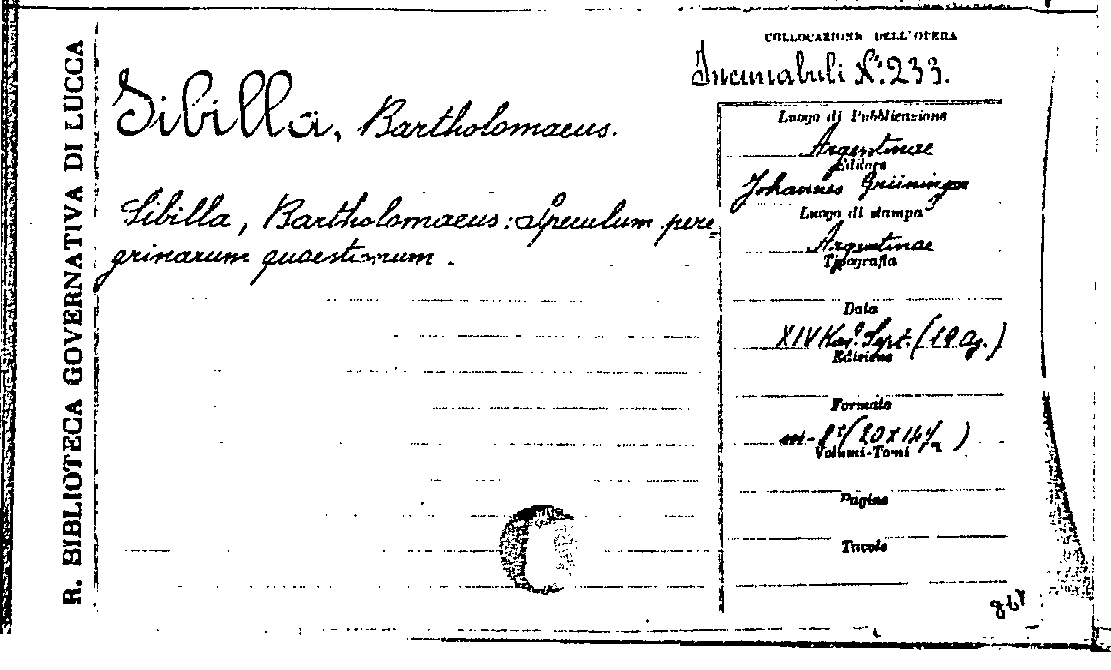 R. BIBLIOTECA GOVERNATIVA DI LUCCA
COLLOCAZIONE DELL'OPERA
Incunabuli N.º 233.
Sibilla, Bartholomaeus.
Sibilla, Bartholomaeus: Speculum pere-
grinarum quaestionum.
Luogo di Pubblicazione
Argentinae
Editore
Johannes Grüninger
Luogo di stampa
Argentinae
Tipografia
Data
XIV Kal. Sept. (19 Ag.)
Edizione
Formato
in-8º (20 X 14½)
Volumi-Tomi
Pagine
Tavole